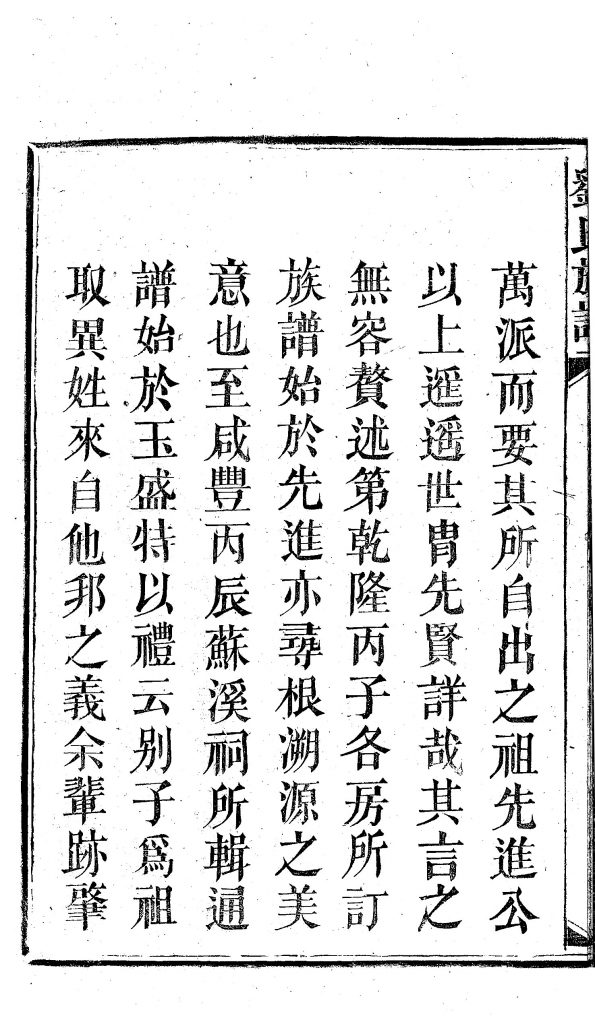 劉氏族譜
萬派而要其所自出之祖先進公
以上遥遥世胄先賢詳哉其言之
無容贅述第乾隆丙子各房所訂
族譜始於先進亦尋根溯源之美
意也至咸豐丙辰蘇溪祠所輯通
譜始於玉盛特以禮云别子爲祖
取異姓來自他邦之義余輩跡肇